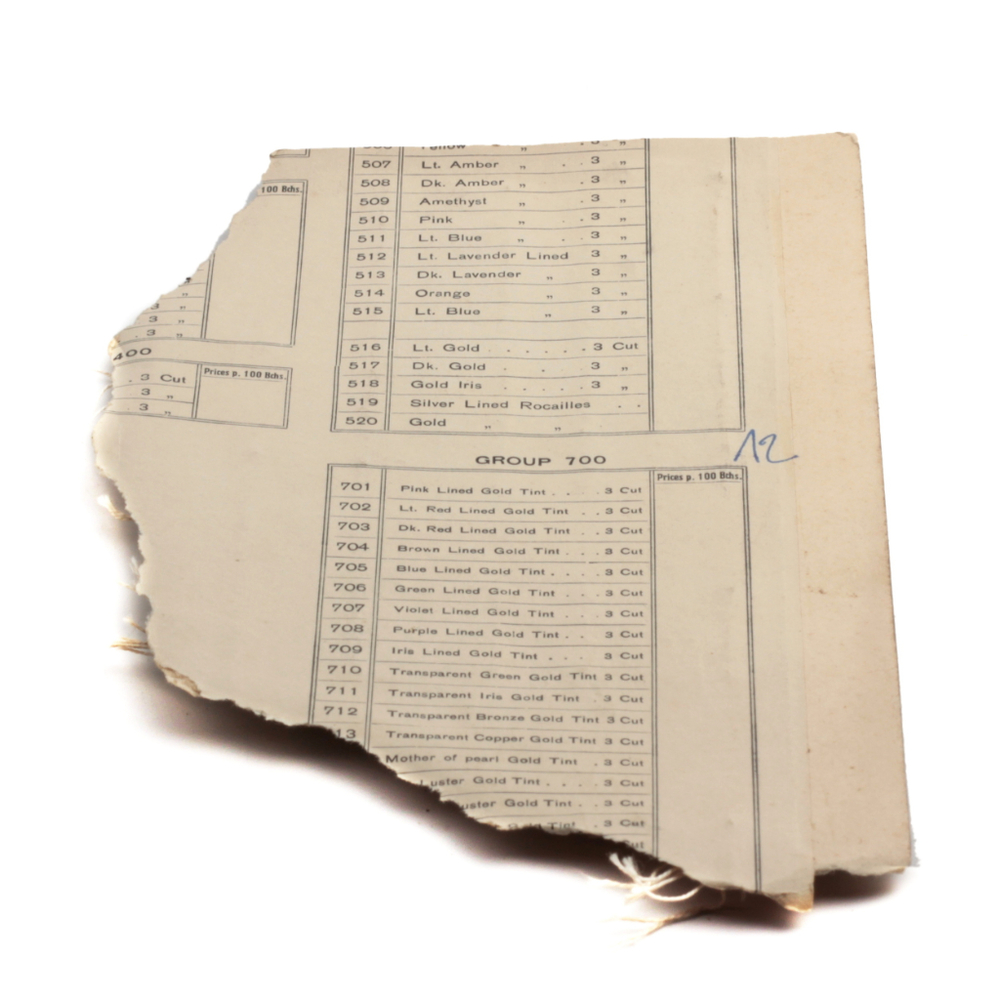 100 Bchs.
3 „
3 „
3 „
400
Prices p. 100 Bchs.
. 3 Cut
3 „
3 „
Yellow „ . . 3 „
507 Lt. Amber „ . . 3 „
508 Dk. Amber „ . 3 „
509 Amethyst „ . 3 „
510 Pink „ . . 3 „
511 Lt. Blue „ . . 3 „
512 Lt. Lavender Lined 3 „
513 Dk. Lavender „ 3 „
514 Orange „ 3 „
515 Lt. Blue „ 3 „
516 Lt. Gold . . . . . . 3 Cut
517 Dk. Gold . . . 3 „
518 Gold Iris . . . . . 3 „
519 Silver Lined Rocailles . .
520 Gold „ „
12
GROUP 700
Prices p. 100 Bchs.
701 Pink Lined Gold Tint . . . . 3 Cut
702 Lt. Red Lined Gold Tint . . 3 Cut
703 Dk. Red Lined Gold Tint . . 3 Cut
704 Brown Lined Gold Tint . . . 3 Cut
705 Blue Lined Gold Tint . . . . 3 Cut
706 Green Lined Gold Tint . . . 3 Cut
707 Violet Lined Gold Tint . . . 3 Cut
708 Purple Lined Gold Tint . . 3 Cut
709 Iris Lined Gold Tint . . . 3 Cut
710 Transparent Green Gold Tint 3 Cut
711 Transparent Iris Gold Tint . 3 Cut
712 Transparent Bronze Gold Tint 3 Cut
13 Transparent Copper Gold Tint 3 Cut
Mother of pearl Gold Tint . 3 Cut
Luster Gold Tint . . . . 3 Cut
uster Gold Tint . . 3 Cut
Gold Tint . 3 Cut
ut